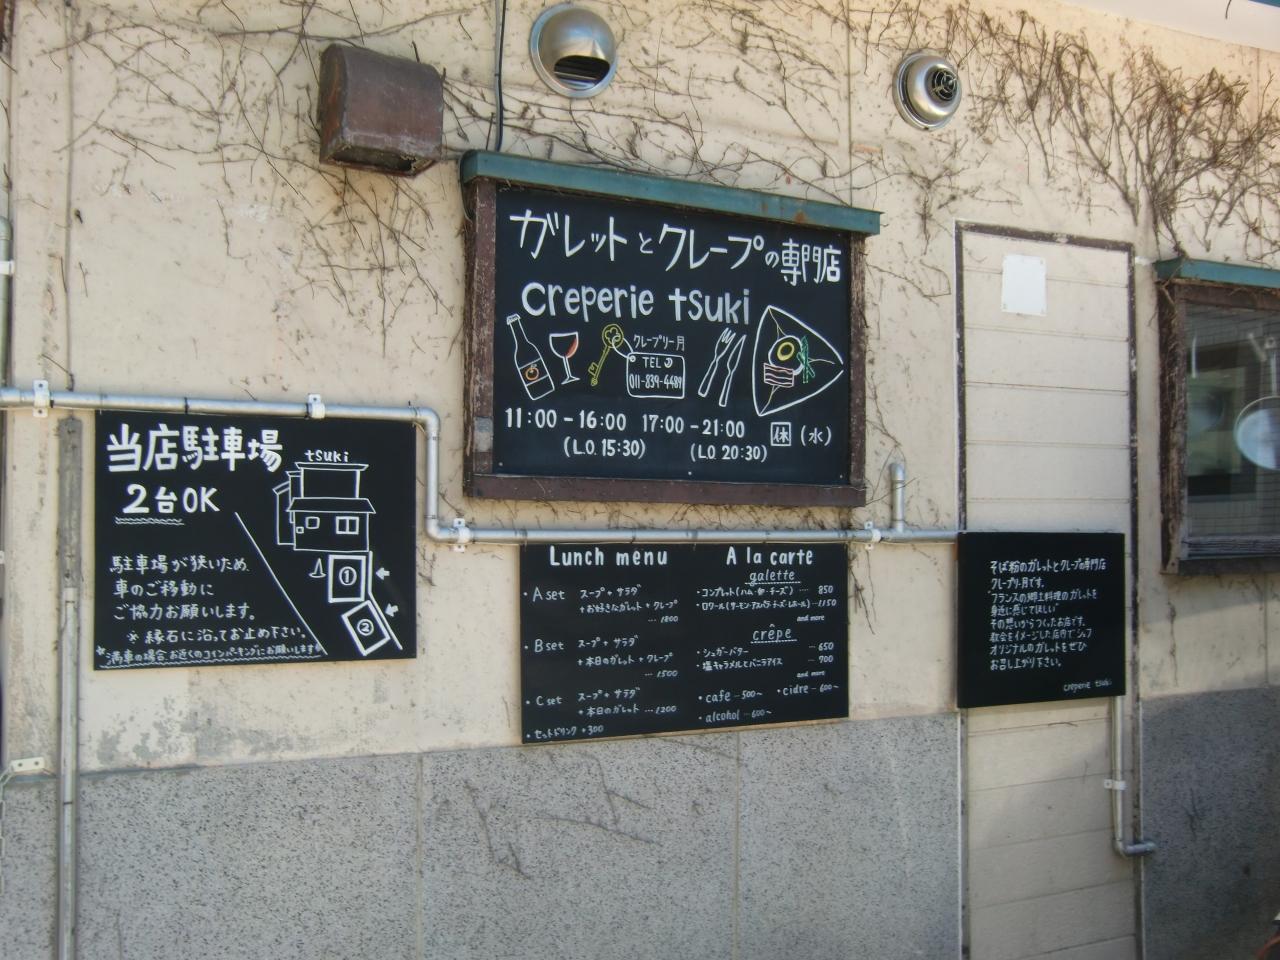 ガレットとクレープの専門店
creperie tsuki
クレープリー月
TEL
011-839-4489
11:00-16:00 17:00-21:00 休(水)
(L.O. 15:30) (L.O 20:30)
当店駐車場
tsuki
2台OK
駐車場が狭いため、
車のご移動に
ご協力お願いします。
※縁石に沿ってお止め下さい。
*満車の場合、お近くのコインパーキングにお願いします*
①
②
Lunch menu
・A set スープ+サラダ
+お好きなガレット+クレープ
…1800
・B set スープ+サラダ
+本日のガレット+クレープ
…1500
・C set スープ+サラダ
+本日のガレット …1200
・セットドリンク+300
A la carte
galette
・コンプレット(ハム・卵・チーズ) …. 850
・ロワール(サーモン・アスパラ・チーズ・レホール)…1150
and more
crêpe
・シュガーバター … 650
・塩キャラメルとバニラアイス … 700
and more
・cafe …500~ ・cidre …600~
・alcohol …600~
そば粉のガレットとクレープの専門店
クレープリー月です。
"フランスの郷土料理のガレットを
身近に感じてほしい"
その想いからつくったお店です。
教会をイメージした店内でシェフ
オリジナルのガレットをぜひ
お召し上がり下さい。
creperie tsuki